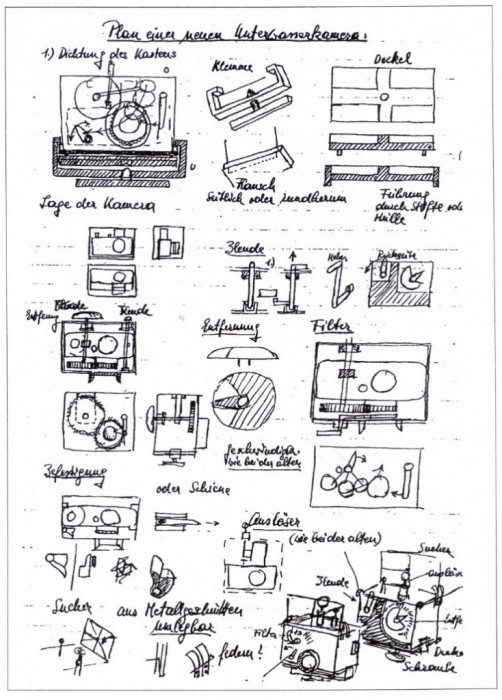 Plan einer neuen Unterwasserkamera.
1.) Dichtung des Kastens
Klemme
Deckel
Flansch
seitlich oder rundherum
Führung
durch Stifte od.
Hülle
Lage der Kamera
Blende
1.)
Hebel
Rückseite
Entfernung
Blende
Entfernung
Filter
Geschwindigk.
wie bei der alten
Befestigung
oder Schiene
Auslöser
(wie bei der alten)
Sucher
Auslös
Blende
Filter
Sucher
aus Metallgeschnitten
umlegbar
federn?
Schraube